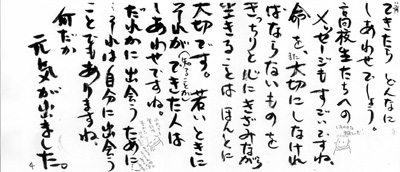 できたら どんなに
しあわせでしょう。
高校生たちへの
メッセージもすごいですね、
命を、また大切にしなけれ
ばならないものを
きっちりと心にきざみながら
生きることは ほんとに
大切です。若いときに
それが(知ること)できた人は
しあわせですね。
だれかに出会うために
それは自分に出会う
ことでもありますね。
何だか
元気が出ました。
4